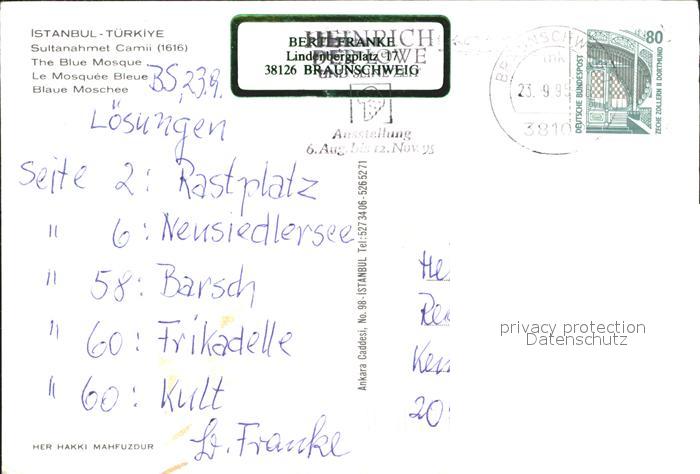 İSTANBUL - TÜRKİYE
Sultanahmet Camii (1616)
The Blue Mosque
Le Mosquée Bleue
Blaue Moschee
BS, 23.9.
BERT FRANKE
Lindenbergplatz 17
38126 BRAUNSCHWEIG
HEINRICH
DER LÖWE
Ausstellung
6. Aug. bis 12. Nov. 95
BRAUNSCHW
mk
23.-9.95
3810
80
DEUTSCHE BUNDESPOST
ZECHE ZOLLERN II DORTMUND
Lösungen
Seite 2: Rastplatz
" 6: Neusiedlersee
" 58: Barsch
" 60: Frikadelle
" 60: Kult
B. Franke
Ankara Caddesi, No. 98-İSTANBUL Tel: 5273406-5265271
privacy protection
Datenschutz
20
HER HAKKI MAHFUZDUR